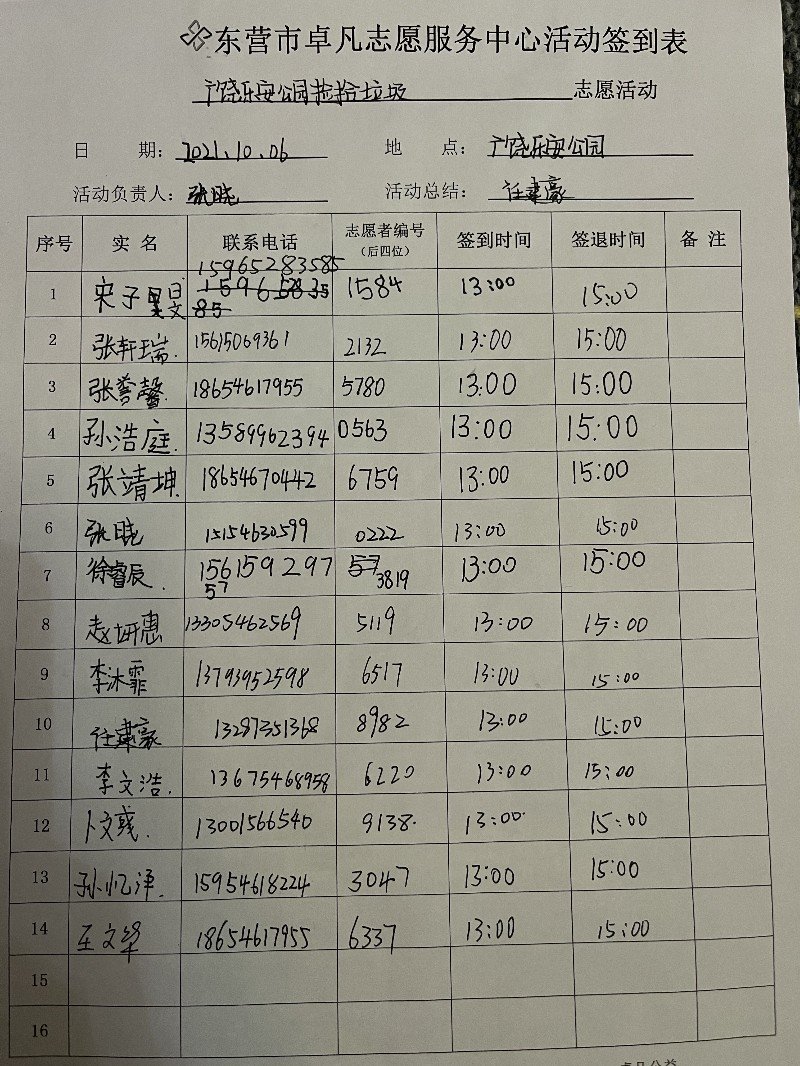 东营市卓凡志愿服务中心活动签到表
广饶乐安公园捡拾垃圾 志愿活动
日 期: 2021.10.06 地 点: 广饶乐安公园
活动负责人: 张晓 活动总结: 任建豪
序号 实 名 联系电话 志愿者编号(后四位) 签到时间 签退时间 备 注
15965283585
1 宋子 1584 13:00 15:00
2 张轩瑞. 15615069361 2132 13:00 15:00
3 张誉馨. 18654617955 5780 13:00 15:00
4 孙浩庭. 13589962394 0563 13:00 15:00
5 张靖坤. 18654670442 6759 13:00 15:00
6 张晓 15154630599 0222 13:00 15:00
7 徐睿辰. 15615929757 3819 13:00 15:00
8 赵妍惠 13305462569 5119 13:00 15:00
9 李沐霏 13793952598 6517 13:00 15:00
10 任建豪 13287351368 8982 13:00 15:00
11 李文浩. 13675468958 6220 13:00 15:00
12 卜文彧. 13001566540 9138. 13:00 15:00
13 孙忆泽. 15954618224 3047 13:00 15:00
14 王文 18654617955 6337 13:00 15:00
15
16